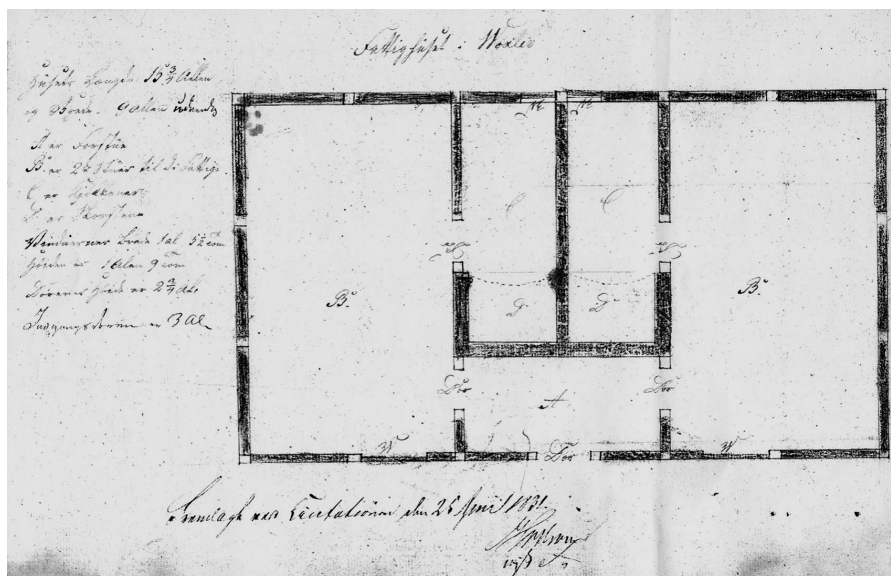 Fattighuset i Woxlev
Husets Længde 15 3/4 Allen
og Brede 9 Allen udvendig
A er Forstue
B er 2de Stuer til de Fattige
C er Kjøkkener
D er Skorsteen
Vinduernes Brede 1 al 5 1/2 Tom
Høiden er 1 Alen 9 Tom
Dørenes Høide er 2 3/4 Al
Indgangsdøren er 3 Al
C C
B
D D
B
Dør Dør
A
Dør
Fremlagt ved Licitationen den 26 Juni 1831